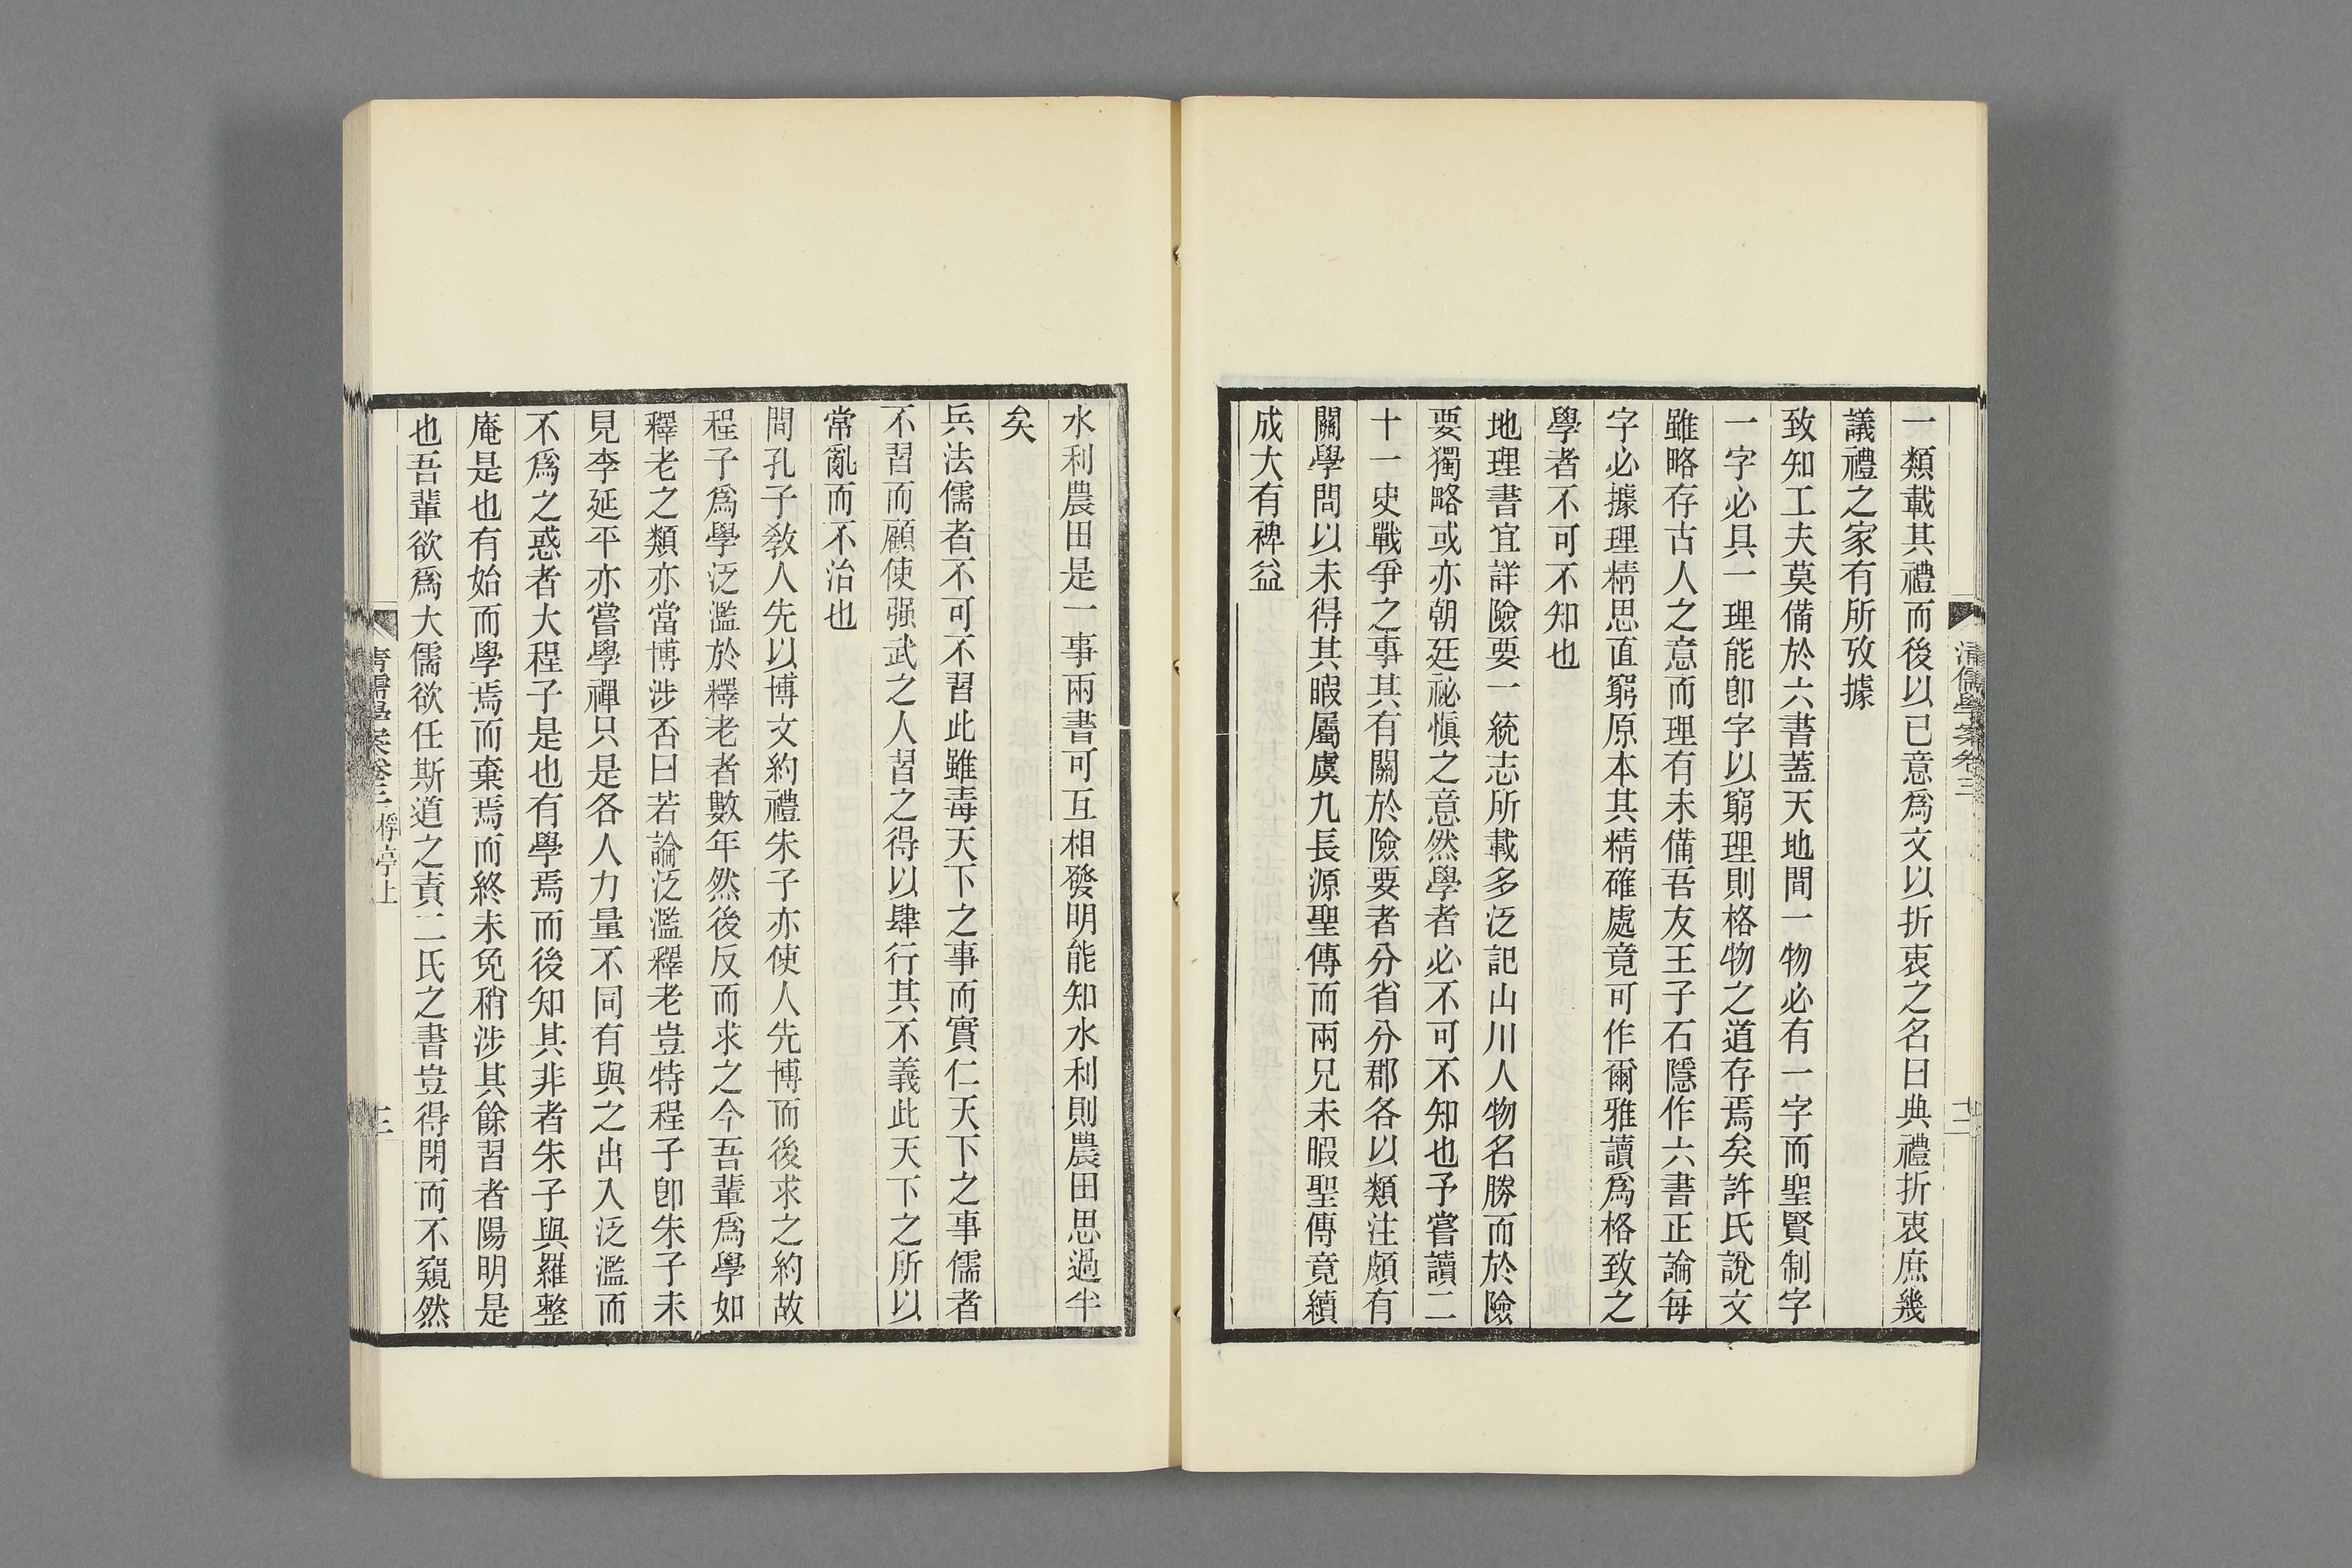 清儒學案卷三
十二
一類載其禮而後以已意爲文以折衷之名曰典禮折衷庶幾
議禮之家有所攷據
致知工夫莫備於六書蓋天地間一物必有一字而聖賢制字
一字必具一理能卽字以窮理則格物之道存焉矣許氏說文
雖略存古人之意而理有未備吾友王子石隱作六書正論每
字必據理精思直窮原本其精確處竟可作爾雅讀爲格致之
學者不可不知也
地理書宜詳險要一統志所載多泛記山川人物名勝而於險
要獨略或亦朝廷祕愼之意然學者必不可不知也予嘗讀二
十一史戰爭之事其有關於險要者分省分郡各以類注頗有
關學問以未得其暇屬虞九長源聖傳而兩兄未暇聖傳竟續
成大有裨益
水利農田是一事兩書可互相發明能知水利則農田思過半
矣
兵法儒者不可不習此雖毒天下之事而實仁天下之事儒者
不習而顧使强武之人習之得以肆行其不義此天下之所以
常亂而不治也
問孔子敎人先以博文約禮朱子亦使人先博而後求之約故
程子爲學泛濫於釋老者數年然後反而求之今吾輩爲學如
釋老之類亦當博涉否曰若論泛濫釋老豈特程子卽朱子未
見李延平亦嘗學禪只是各人力量不同有與之出入泛濫而
不爲之惑者大程子是也有學焉而後知其非者朱子與羅整
庵是也有始而學焉而棄焉而終未免稍涉其餘習者陽明是
也吾輩欲爲大儒欲任斯道之責二氏之書豈得閉而不窺然
清儒學案卷三 桴亭上
三